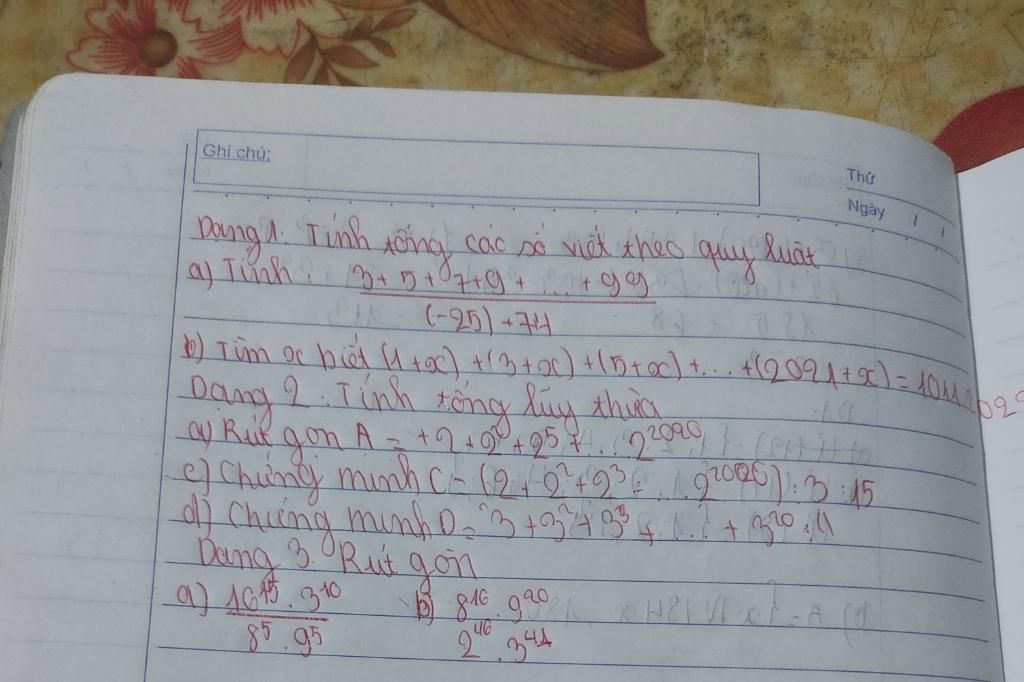 Ghi chú:
Thứ
Ngày / /
Dạng 1. Tính tổng các số viết theo quy luật
a) Tính: (3+5+7+9+...+99)/((-25)+74)
b) Tìm x biết (1+x)+(3+x)+(5+x)+...+(2021+x)=
Dạng 2. Tính tổng lũy thừa
a) Rút gọn A = +2+2 +2⁵+...2²⁰²⁰
c) Chứng minh C=(2+2²+2³+...2 ):3:15
d) Chứng minh D=3+3²+3³+...+3²⁰:4
Dạng 3. Rút gọn
a) (16¹⁵.3¹⁰)/(8⁵.9⁵) b) 8¹⁶.9²⁰
2⁴⁶.3⁴¹